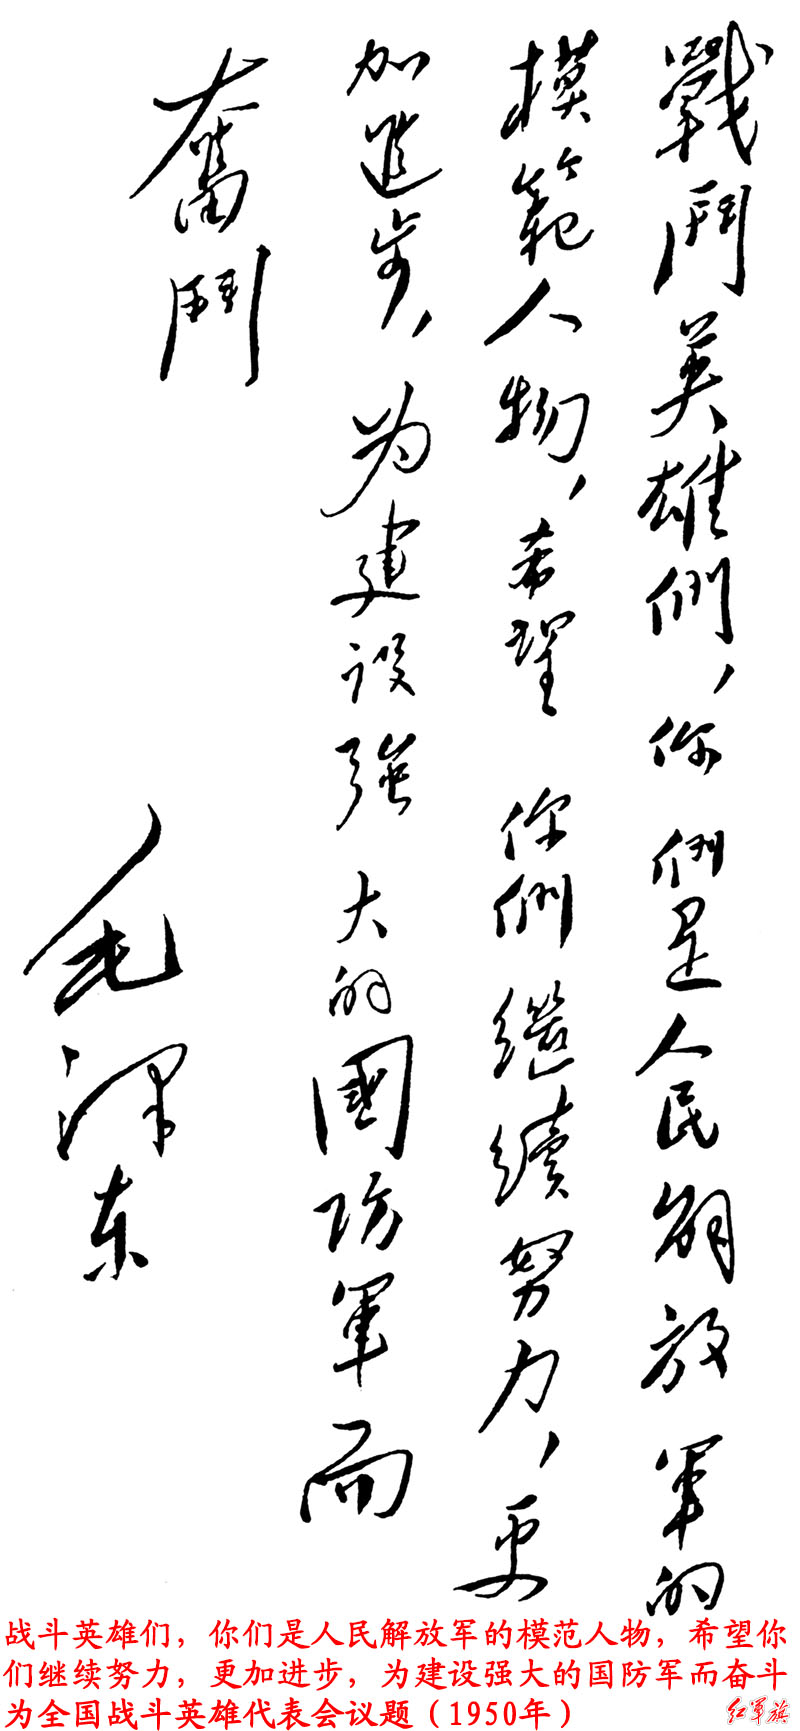 戰鬥英雄們，你們是人民解放军的
模範人物，希望你們继续努力，更
加進步，为建设强大的國防軍而
奮鬥
毛泽东
战斗英雄们，你们是人民解放军的模范人物，希望你
们继续努力，更加进步，为建设强大的国防军而奋斗
为全国战斗英雄代表会议题（1950年）
红军旗